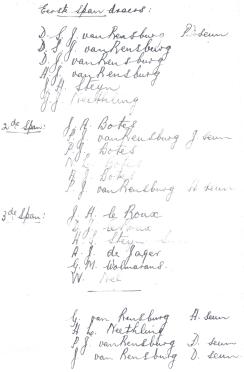 Eerste Span draers:
D. G. J. van Rensburg P. seun
D. S. J. van Rensburg
D. J. van Rensburg
H. J. van Rensburg
J. H. Steyn
J. J. Neethling
2de Span: J. A. Botes
van Rensburg J seun
P. J. Botes
Botes
A. J. Botes
P. J. van Rensburg A seun
3de Span: J. H. le Roux
le Roux
H. S. Steyn
A. J. de Jager
G. M. Wolmarans
W. Nel
C. van Rensburg A. seun
H. L. Neethling
P. J. van Rensburg D. seun
J van Rensburg D. seun